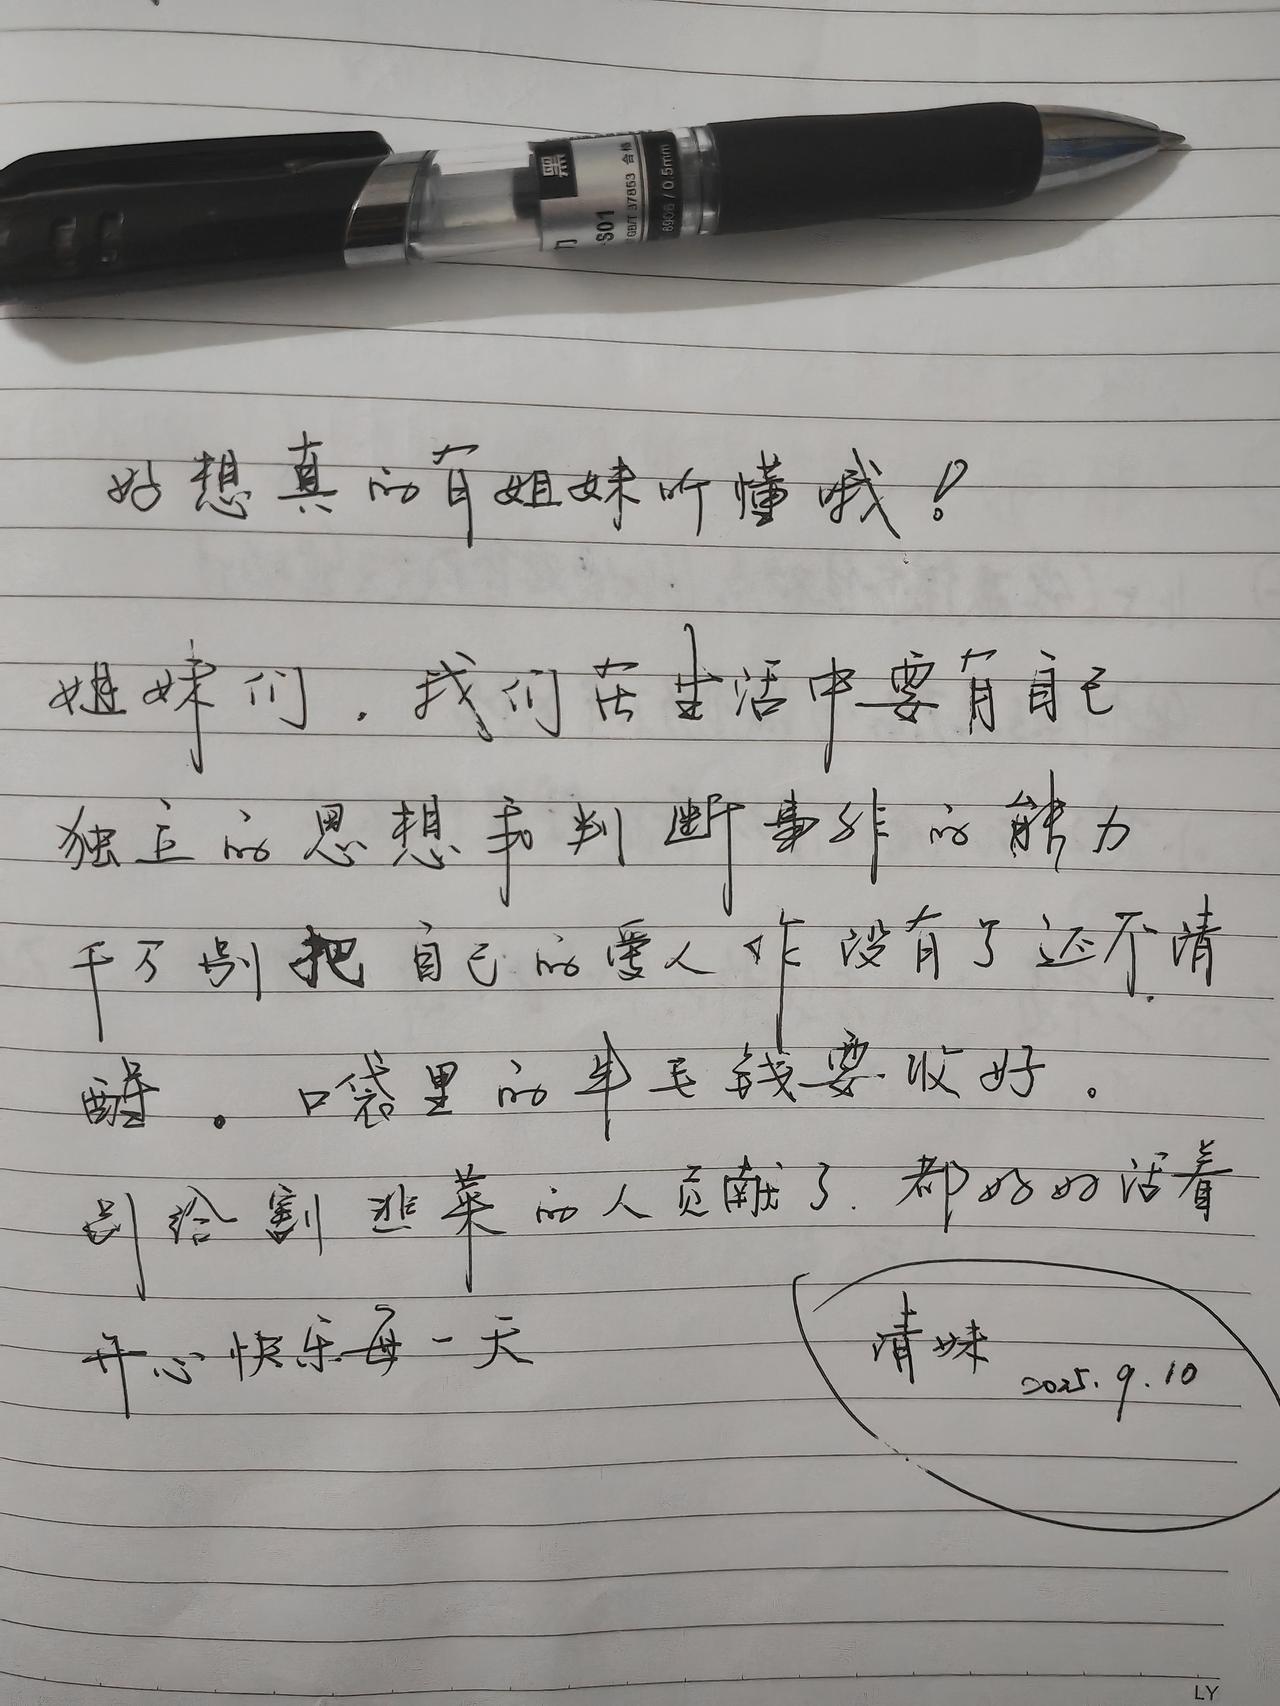 黑
力
S01
GB/T 37853 合格
6906 / 0.5mm
好想真的有姐妹听懂哦！
姐妹们．我们在生活中要有自己
独立的思想和判断事非的能力
千万别把自己的爱人作没有了还不清
醒。口袋里的半毛钱要收好。
别给割韭菜的人贡献了．都好好活着
开心快乐每一天
清妹
2025.9.10
LY